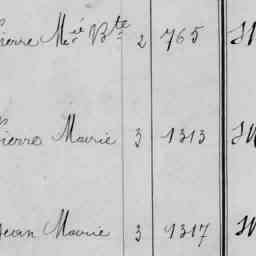 Pierre Mie Bte 2 765 M
Pierre Marie 3 1313 M
Jean Marie 3 1317 M